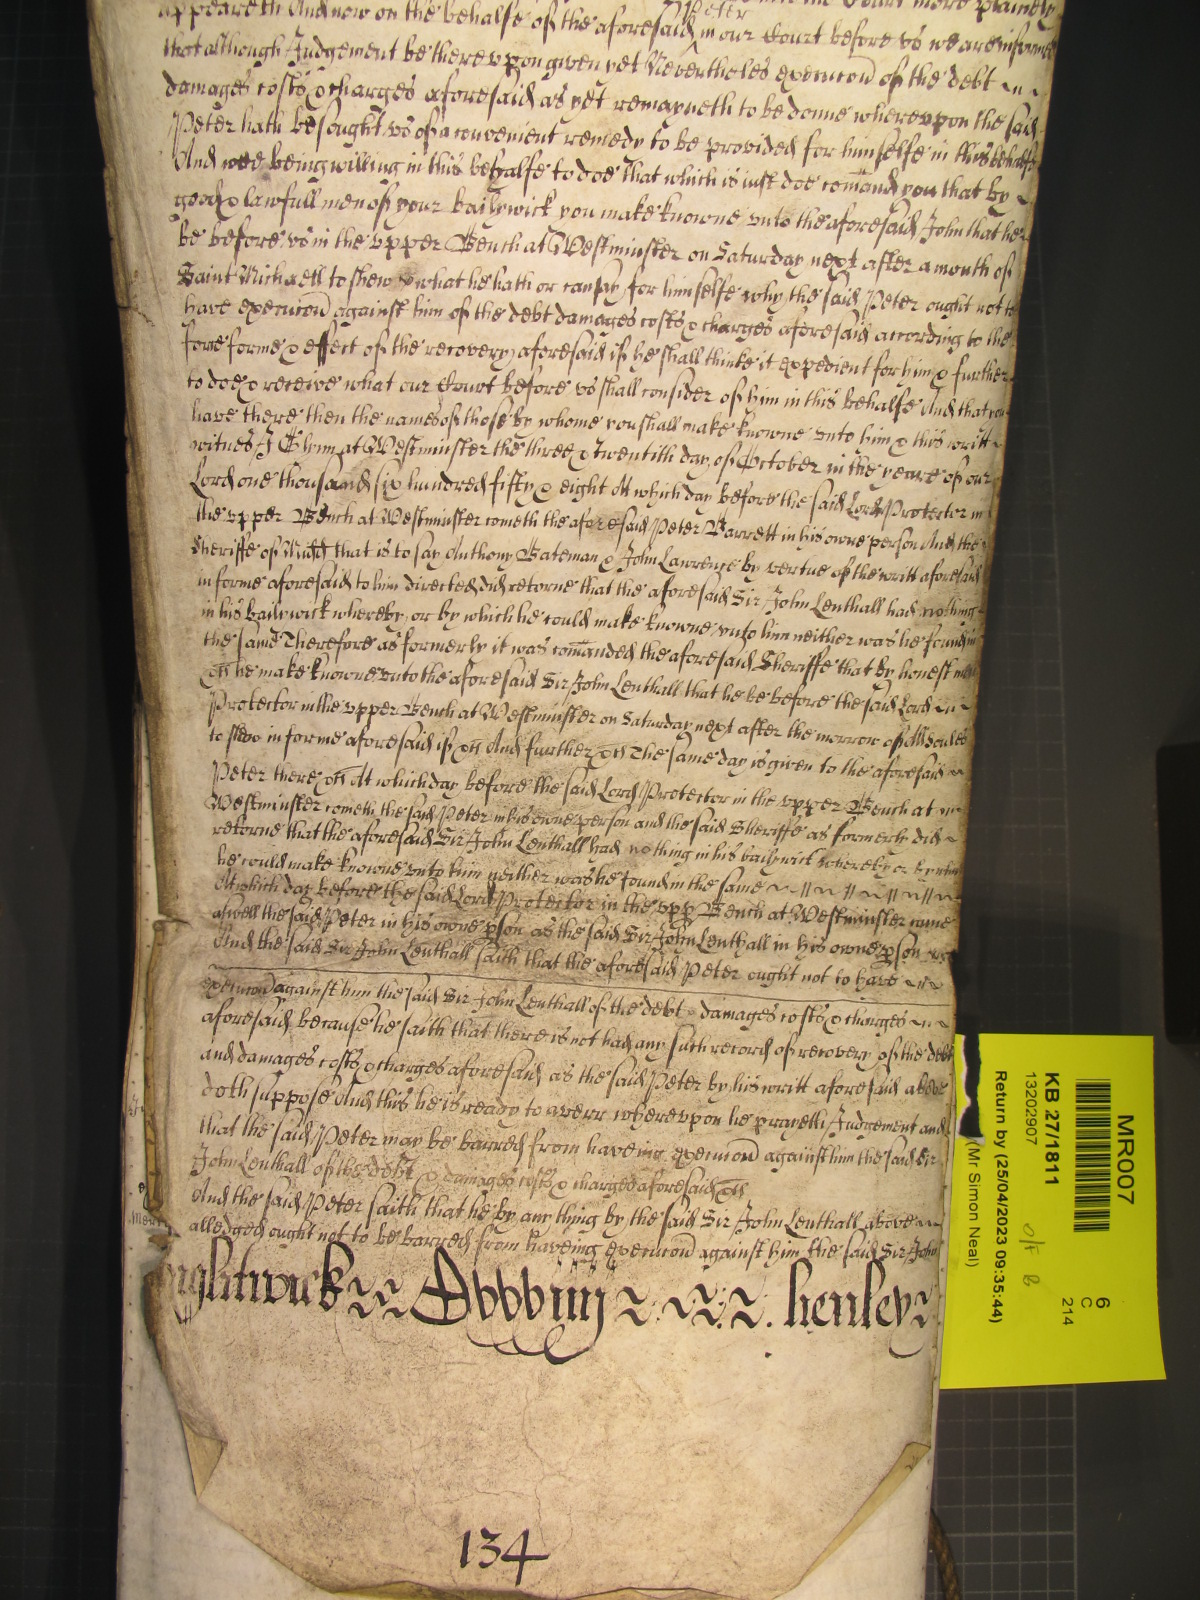 appeareth And now on the behalfe of the aforesaid Peter in our Court before us we are informed
that although Judgement be thereuppon given yet Nevertheles execucon of the debt
damages costs & charges aforesaid as yet remayneth to be donne whereuppon the said
Peter hath besought us of a convenient remedy to be provided for himselfe in this behalfe
And wee being willing in this behalfe to doe that which is just doe comand you that by
good & lawfull men of your bailywick you make knowne unto the aforesaid John that he
be before us in the upper Bench at Westminster on Saturday next after a month of
Saint Michaell to shew what he hath or can say for himselfe why the said Peter ought not to
have execucon against him of the debt damages costs & charges aforesaid according to the
force forme & effect of the recovery aforesaid if he shall thinke it expedient for him & further
to doe & receive what our Court before us shall consider of him in this behalfe And that you
have there then the names of those by whome you shall make knowne unto him & this writt
witnes J Glynn at Westminster the three & Twentith day of October in the yeare of our
Lord one thousand six hundred fifty & eight At which day before the said Lord Protector in
the upper Bench at Westminster cometh the aforesaid Peter Barrett in his owne person And the
Sheriffe of Midd that is to say Anthony Bateman & John Lawrence by vertue of the writt aforesaid
in forme aforesaid to him directed did retorne that the aforesaid Sir John Lenthall had nothing
in his bailywick whereby or by which he could make knowne unto him neither was he found in
the same Therefore as formerly it was comanded the aforesaid Sheriffe that by honest men
&c he make knowne unto the aforesaid Sir John Lenthall that he be before the said Lord
Protector in the upper Bench at Westminster on Saturday next after the morrow of All soules
to shew in forme aforesaid if &c And further &c The same day is given to the aforesaid
Peter there &c At which day before the said Lord Protector in the upper Bench at
Westminster cometh the said Peter in his owne person and the said Sheriffe as formerly did
retorne that the aforesaid Sir John Lenthall had nothing in his bailywick whereby or by which
he could make knowne unto him neither was he found in the same
At which day before the said Lord Protector in the upp Bench at Westminster came
aswell the said Peter in his owne pson as the said Sir John Lenthall in his owne pson
And the said Sir John Lenthall saith that the aforesaid Peter ought not to have
execucon against him the said Sir John Lenthall of the debt damages costs & charges
aforesaid because he saith that there is not had any such record of recovery of the debt
and damages costs & charges aforesaid as the said Peter by his writt aforesaid above
doth suppose And this he is ready to averr whereupon he prayeth Judgement and
that the said Peter may be barred from haveing execucon against him the said Sir
John Lenthall of the debt damages costs & charges aforesaid &c
And the said Peter saith that he by any thing by the said Sir John Lenthall above
alledged ought not to be barred from haveing execucon against him the said Sir John
henley
134
MR007
6
C
214
KB 27/1811
13202907
O/F B
Return by (25/04/2023 09:35:44)
(Mr Simon Neal)